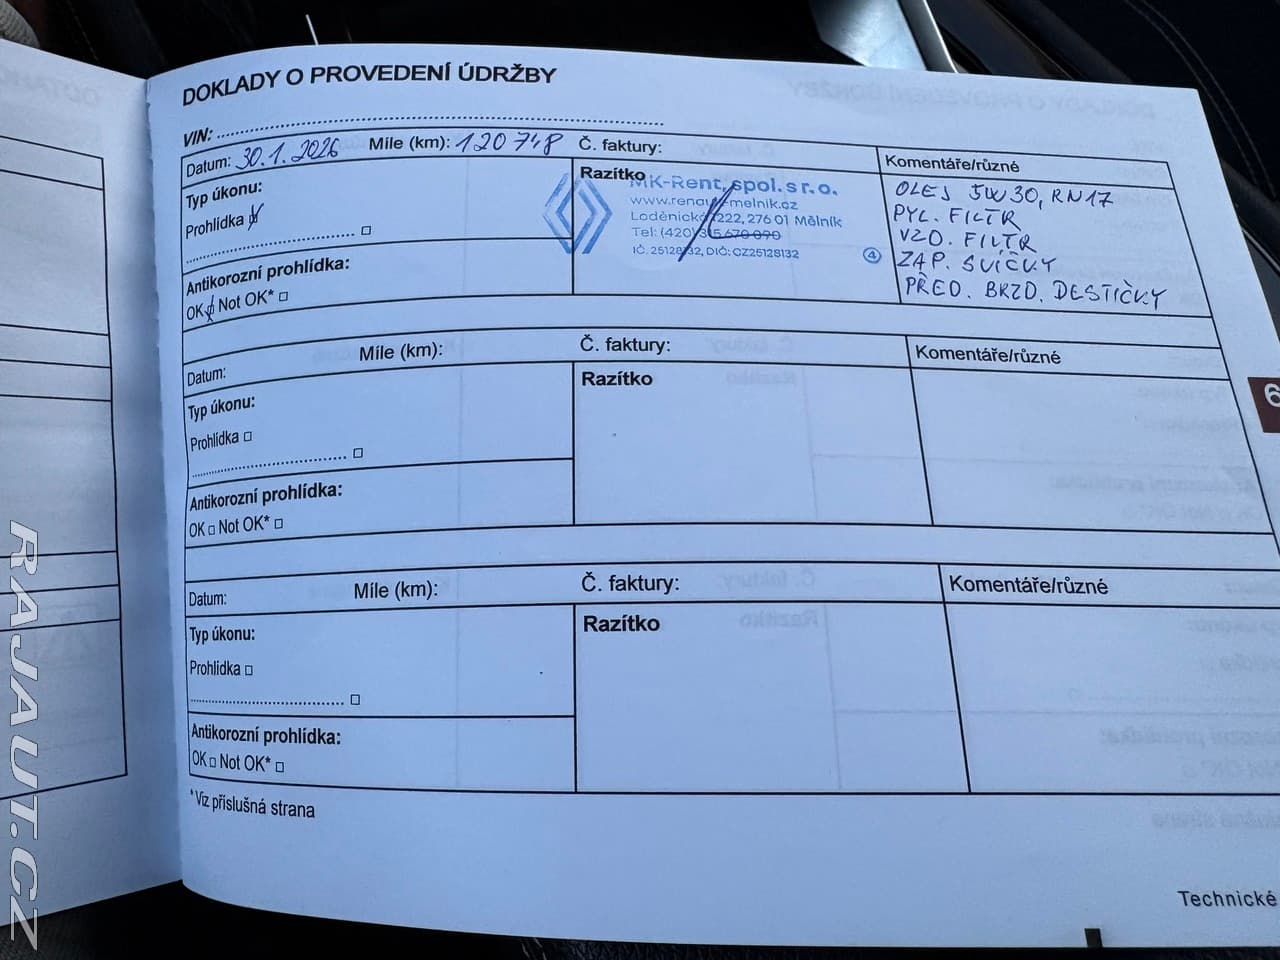 DOKLADY O PROVEDENÍ ÚDRŽBY
VIN:
Datum: 30.1.2026 Míle (km): 120 748 Č. faktury:
Komentáře/různé
Typ úkonu:
Prohlídka
Antikorozní prohlídka:
OK Not OK*
Razítko
MK-Rent, spol. s r.o.
www.renault-melnik.cz
Loděnická 222, 276 01 Mělník
Tel: (420) 315 670 090
IČ. 25128132, DIČ: CZ25128132
4
OLEJ 5W30, RN17
PYL. FILTR
VZD. FILTR
ZAP. SVÍČKY
PŘED. BRZD. DESTIČKY
Datum: Míle (km): Č. faktury: Komentáře/různé
Typ úkonu:
Prohlídka
Antikorozní prohlídka:
OK Not OK*
Razítko
Datum: Míle (km): Č. faktury: Komentáře/různé
Typ úkonu:
Prohlídka
Antikorozní prohlídka:
OK Not OK*
Razítko
* Viz příslušná strana
6
Technické
RAJAUT.CZ